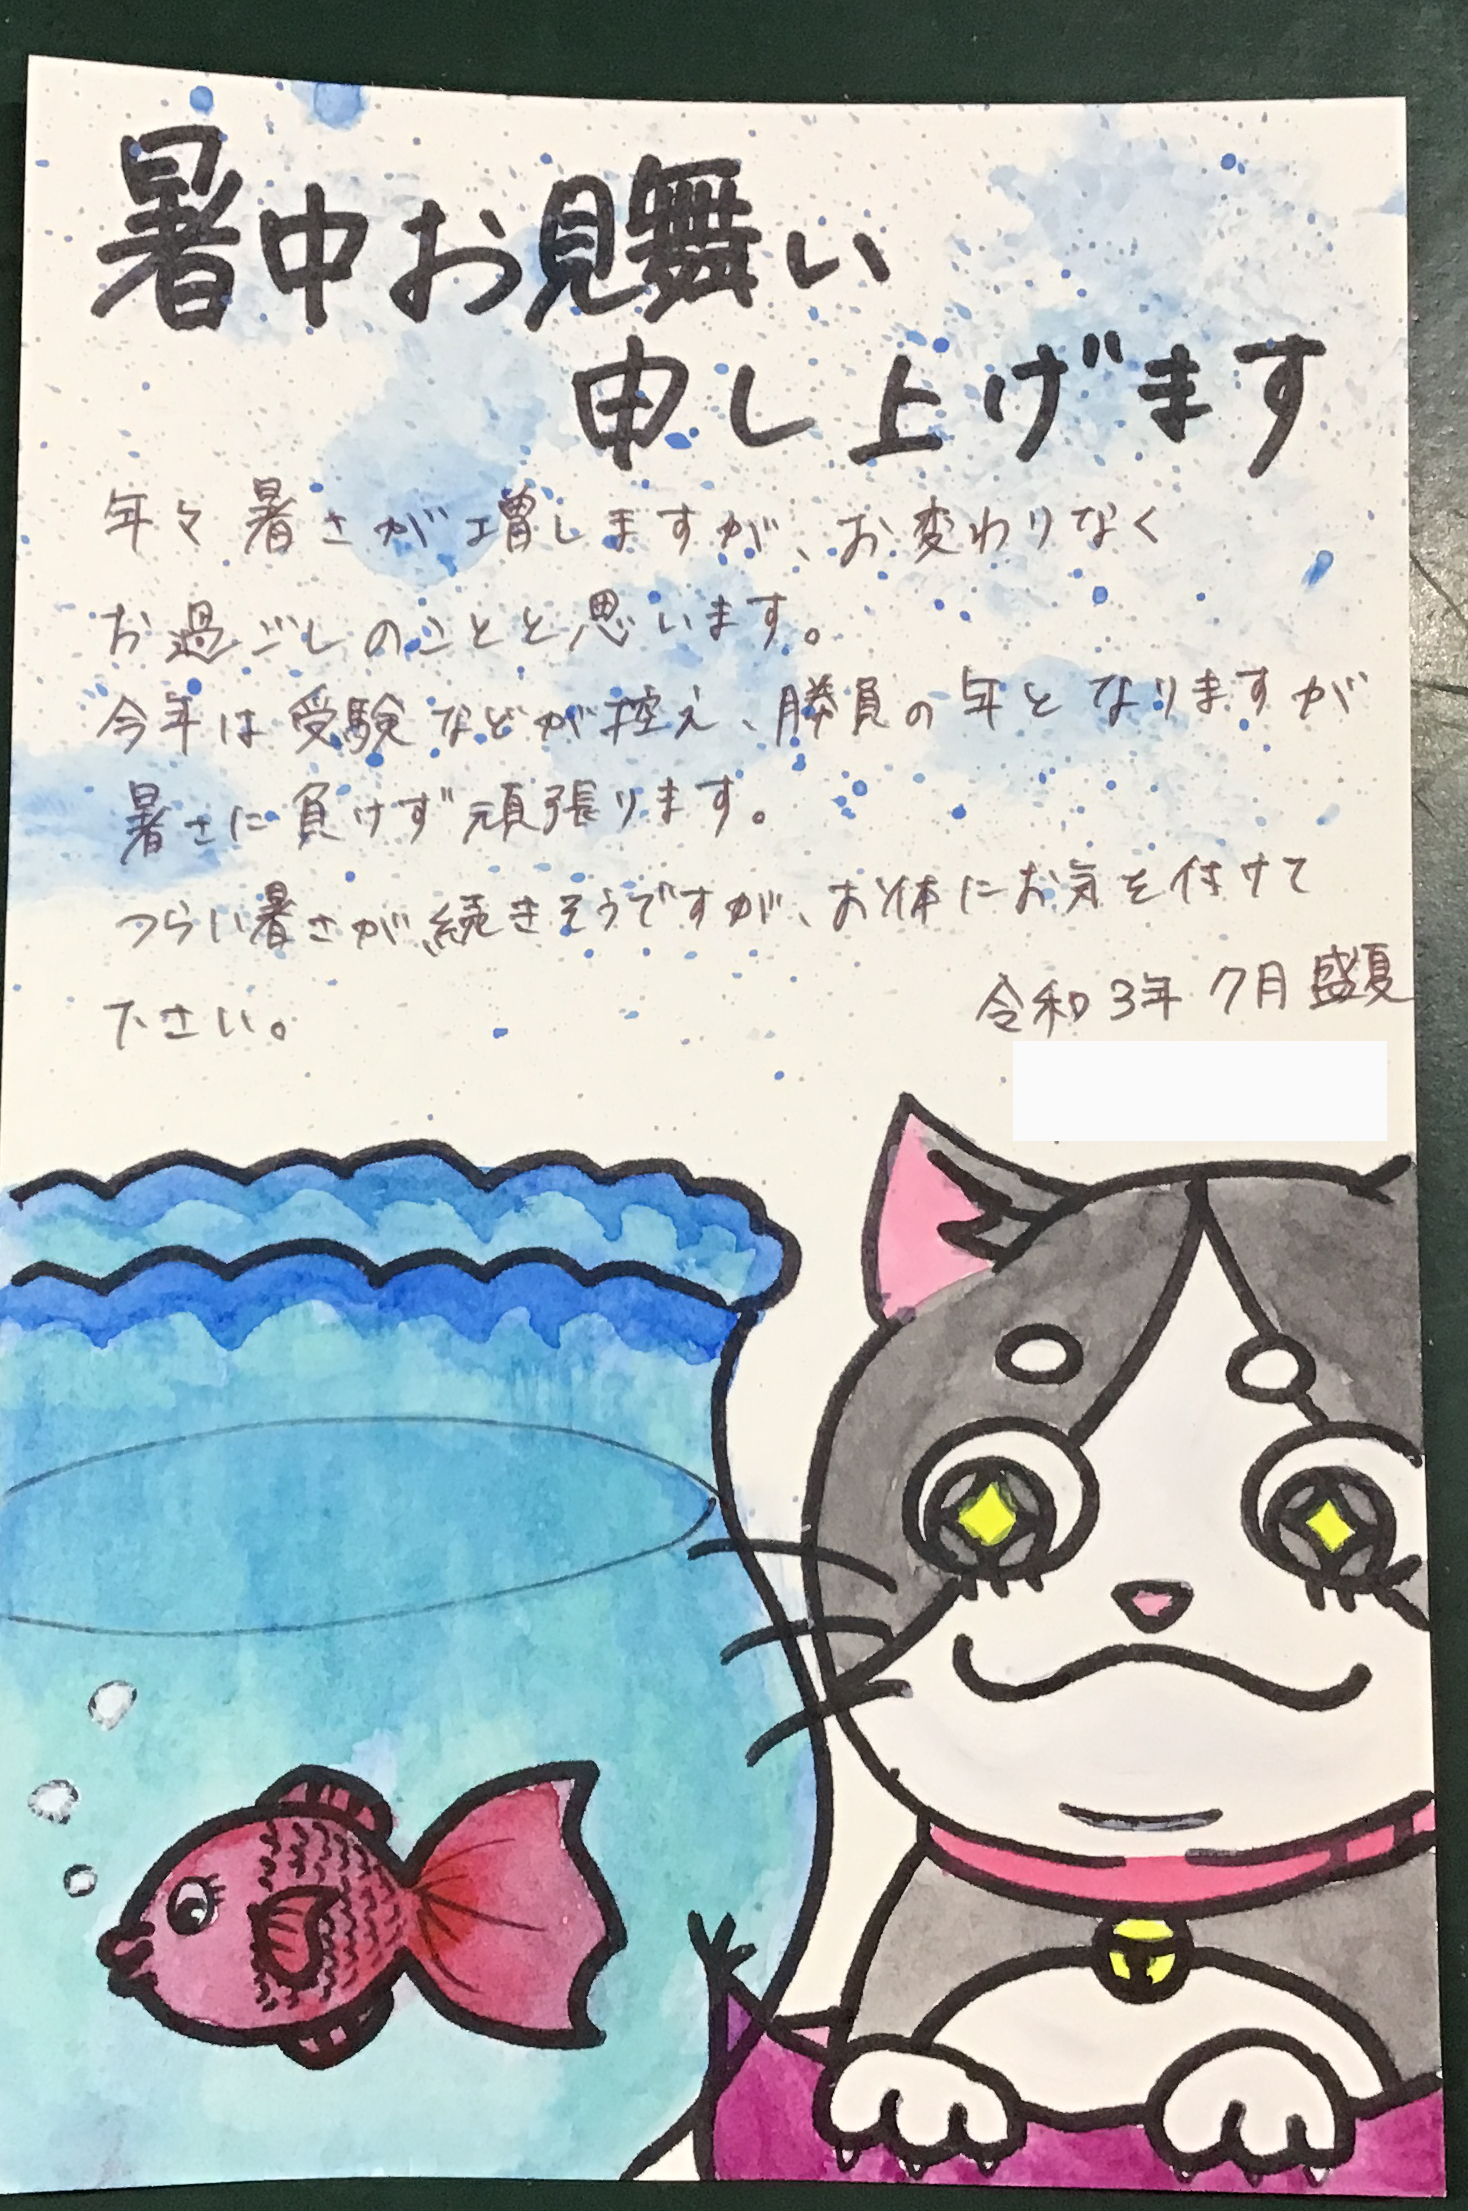 暑中お見舞い
申し上げます
年々暑さが増しますが、お変わりなく
お過ごしのことと思います。
今年は受験などが控え、勝負の年となりますが
暑さに負けず頑張ります。
つらい暑さが続きそうですが、お体にお気を付けて
下さい。
令和3年 7月 盛夏